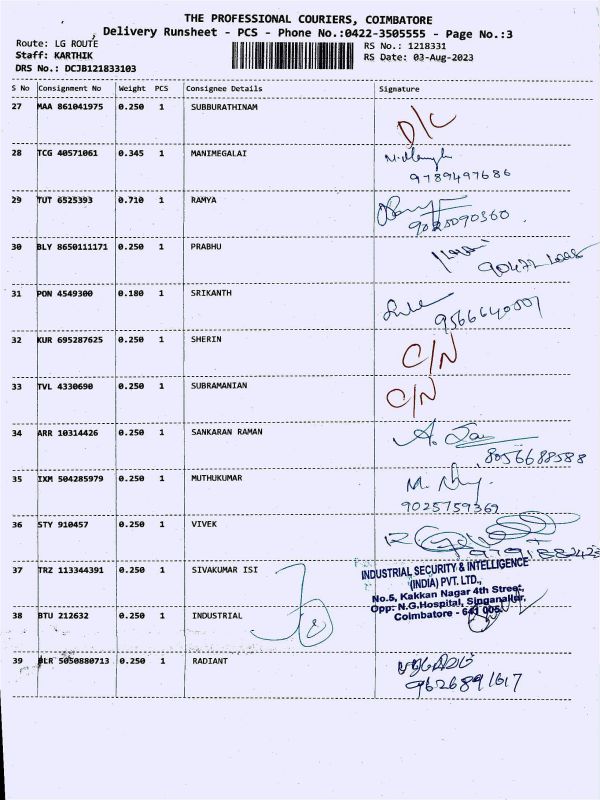 THE PROFESSIONAL COURIERS, COIMBATORE
Delivery Runsheet - PCS - Phone No.:0422-3505555 - Page No.:3
Route: LG ROUTE RS No.: 1218331
Staff: KARTHIK RS Date: 03-Aug-2023
DRS No.: DCJB121833103
S No Consignment No Weight PCS Consignee Details Signature
27 MAA 861041975 0.250 1 SUBBURATHINAM
D/C
28 TCG 40571061 0.345 1 MANIMEGALAI
9789497686
29 TUT 6525393 0.710 1 RAMYA
30 BLY 8650111171 0.250 1 PRABHU
31 PON 4549300 0.180 1 SRIKANTH
32 KUR 695287625 0.250 1 SHERIN
C/N
33 TVL 4330690 0.250 1 SUBRAMANIAN
C/N
34 ARR 10314426 0.250 1 SANKARAN RAMAN
8056688588
35 IXM 504285979 0.250 1 MUTHUKUMAR
9025759369
36 STY 910457 0.250 1 VIVEK
37 TRZ 113344391 0.250 1 SIVAKUMAR ISI
INDUSTRIAL SECURITY & INTELLIGENCE
(INDIA) PVT. LTD.,
No.5, Kakkan Nagar 4th Street,
Opp: N.G.Hospital, Singanallur,
Coimbatore - 641 005.
38 BTU 212632 0.250 1 INDUSTRIAL
39 BLR 5050880713 0.250 1 RADIANT
9626891617